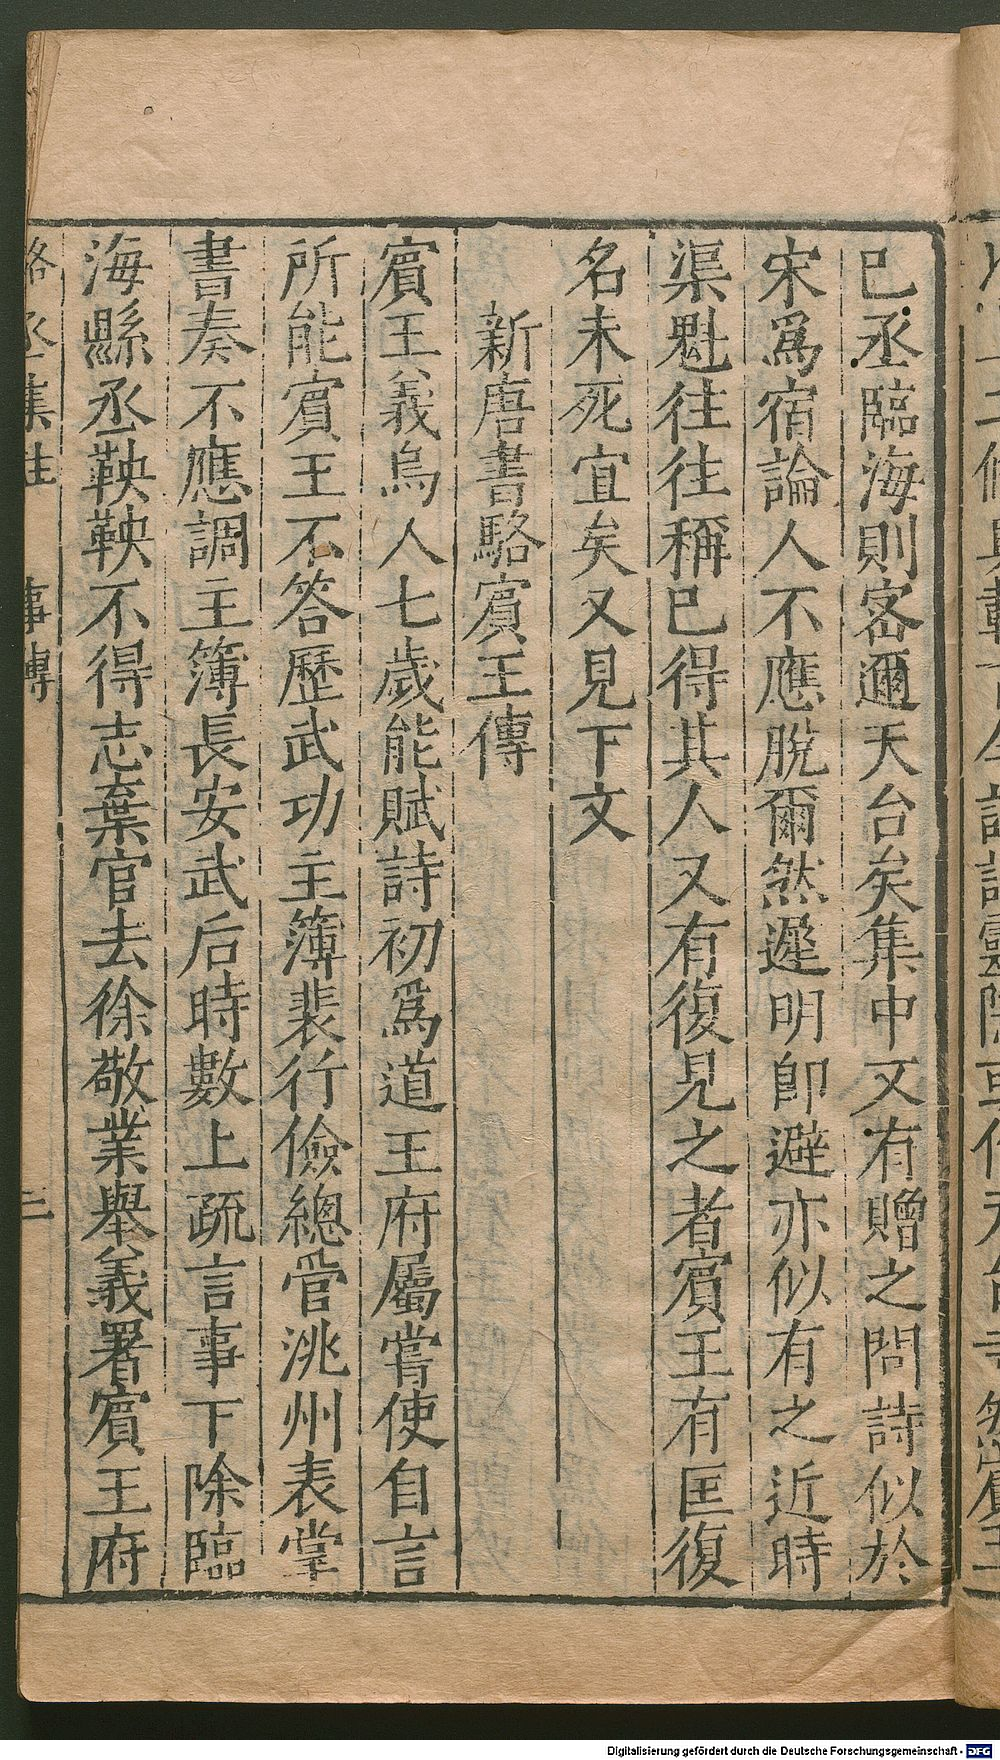 已丞臨海則密邇天台矣集中又有贈之問詩似於
宋爲宿論人不應脫爾然遲明卽避亦似有之近時
渠魁往往稱已得其人又有復見之者賓王有匡復
名未死宜矣又見下文
新唐書駱賓王傳
賓王義烏人七歲能賦詩初爲道王府屬嘗使自言
所能賓王不答歷武功主簿裴行儉總管洮州表掌
書奏不應調主簿長安武后時數上疏言事下除臨
海縣丞鞅鞅不得志棄官去徐敬業舉義署賓王府
駱丞集註 事傳 二
Digitalisierung gefördert durch die Deutsche Forschungsgemeinschaft - DFG